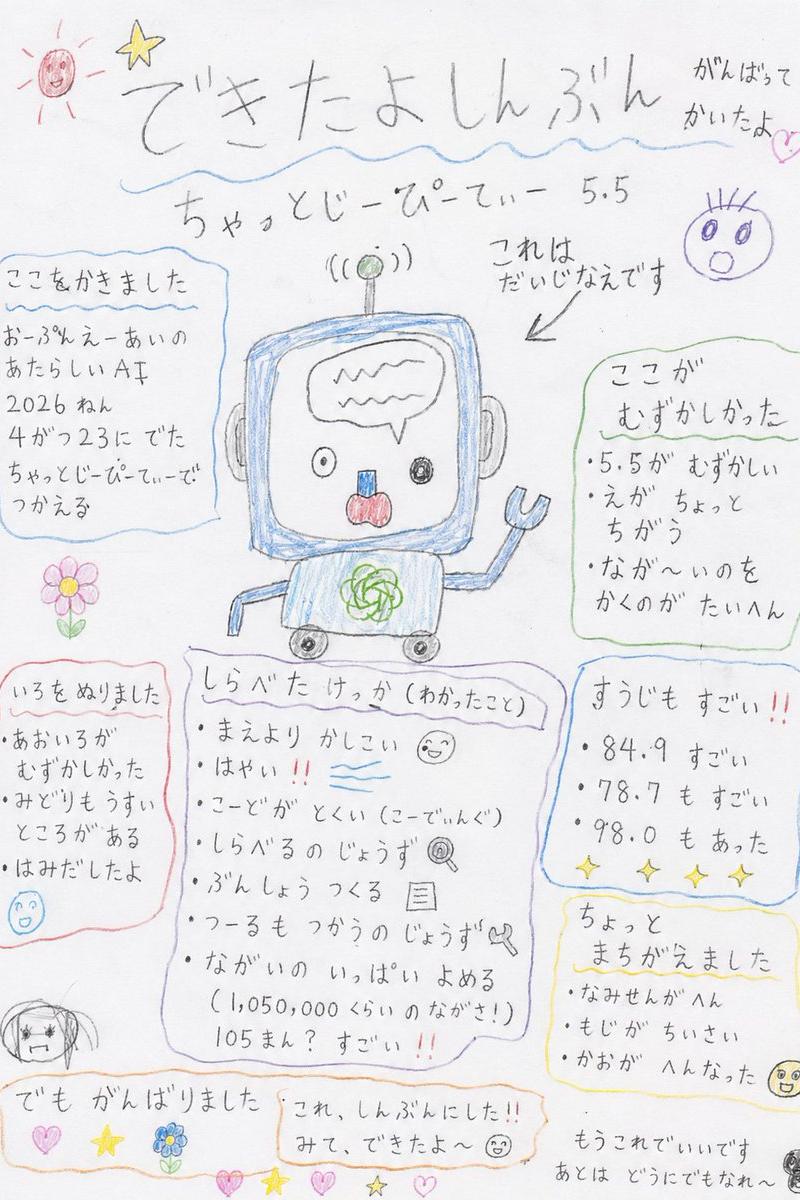 できたよしんぶん
がんばって
かいたよ
ちゃっとじーぴーてぃー 5.5
これは
だいじなえです
ここをかきました
おーぷんえーあいの
あたらしいAI
2026ねん
4がつ23に でた
ちゃっとじーぴーてぃーで
つかえる
ここが
むずかしかった
・5.5が むずかしい
・えが ちょっと
ちがう
・なが〜いのを
かくのが たいへん
いろをぬりました
・あおいろが
むずかしかった
・みどりもうすい
ところがある
・はみだしたよ
しらべた けっか(わかったこと)
・まえより かしこい
・はやい!!
・こーどが とくい(こーでぃんぐ)
・しらべるの じょうず
・ぶんしょう つくる
・つーるも つかうの じょうず
・ながいの いっぱい よめる
(1,050,000くらいのながさ!)
105まん? すごい!!
すうじも すごい!!
・84.9 すごい
・78.7 も すごい
・98.0 も あった
ちょっと
まちがえました
・なみせんが へん
・もじが ちいさい
・かおが へんなった
でも がんばりました
これ、しんぶんにした!!
みて、できたよ〜
もうこれでいいです
あとは どうにでもなれ〜